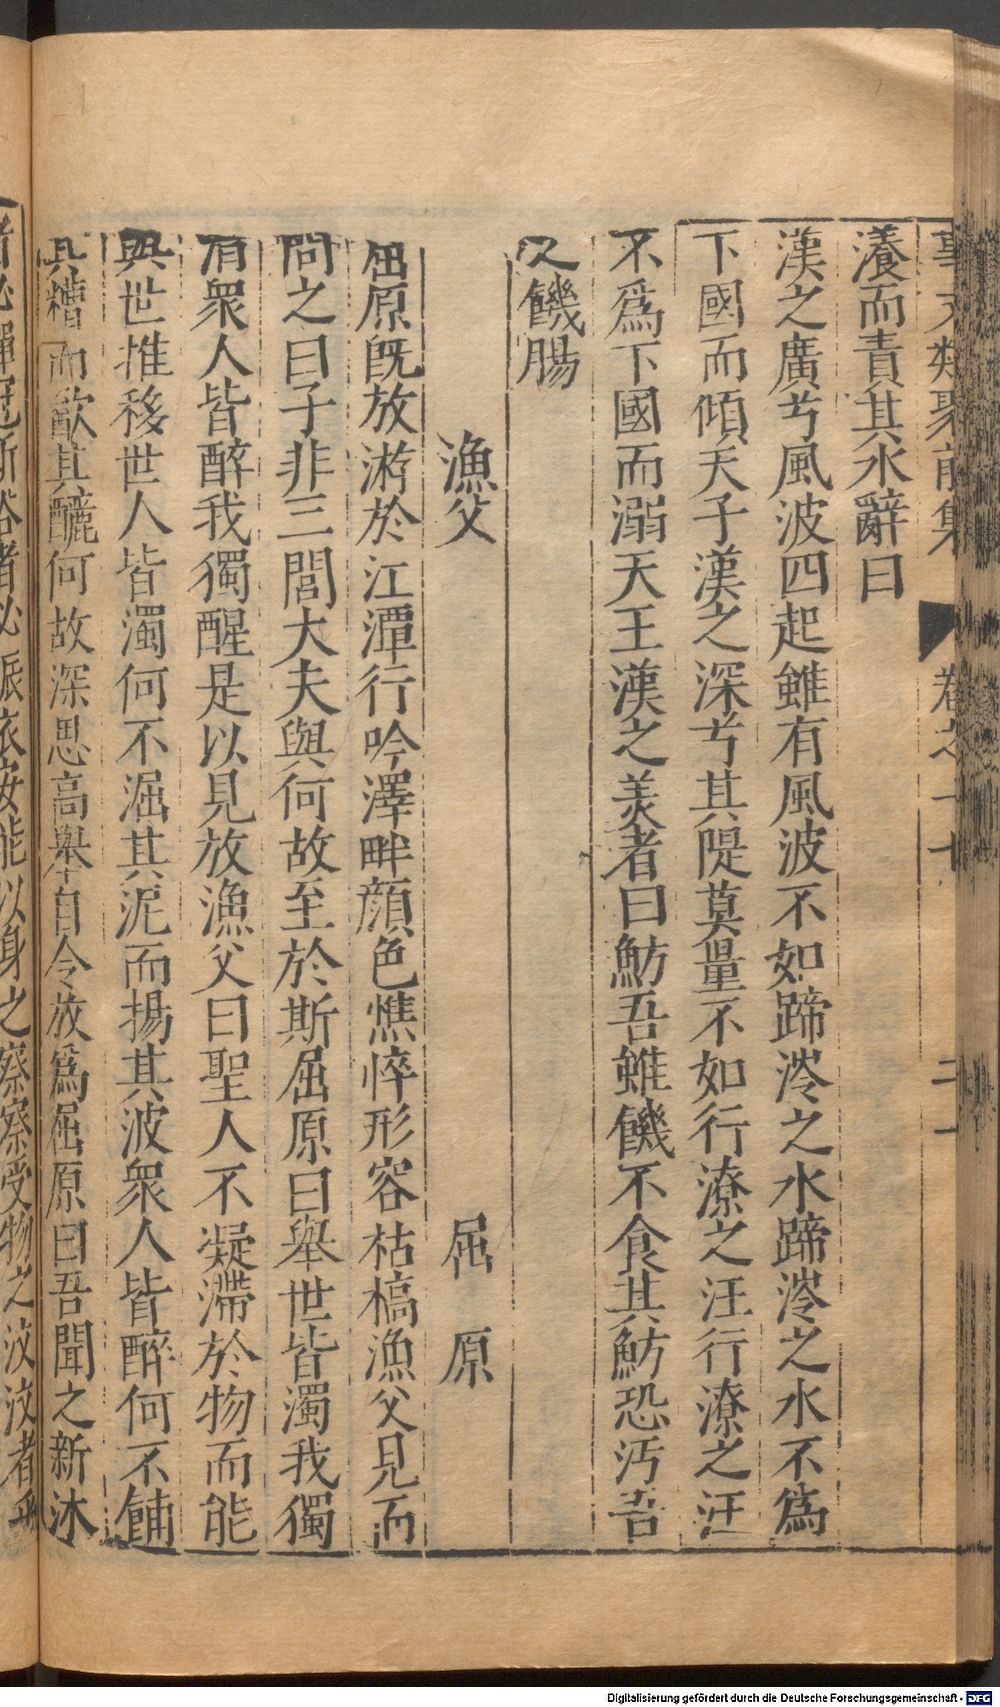 事文類聚前集 卷之十七 二十
瀁而責其水辭曰
漢之廣兮風波四起雖有風波不如蹄涔之水蹄涔之水不為
下國而傾天子漢之深兮其隄莫量不如行潦之汪行潦之汪
不爲下國而溺天王漢之美者曰魴吾雖饑不食其魴恐汚吾
之饑腸
漁父 屈原
屈原旣放游於江潭行吟澤畔顔色憔悴形容枯槁漁父見而
問之曰子非三閭大夫與何故至於斯屈原曰舉世皆濁我獨
清衆人皆醉我獨醒是以見放漁父曰聖人不凝滯於物而能
與世推移世人皆濁何不淈其泥而揚其波衆人皆醉何不餔
其糟而歠其釃何故深思高舉自令放爲屈原曰吾聞之新沐
者必彈冠新浴者必振衣安能以身之察察受物之汶汶者乎
Digitalisierung gefördert durch die Deutsche Forschungsgemeinschaft - DFG